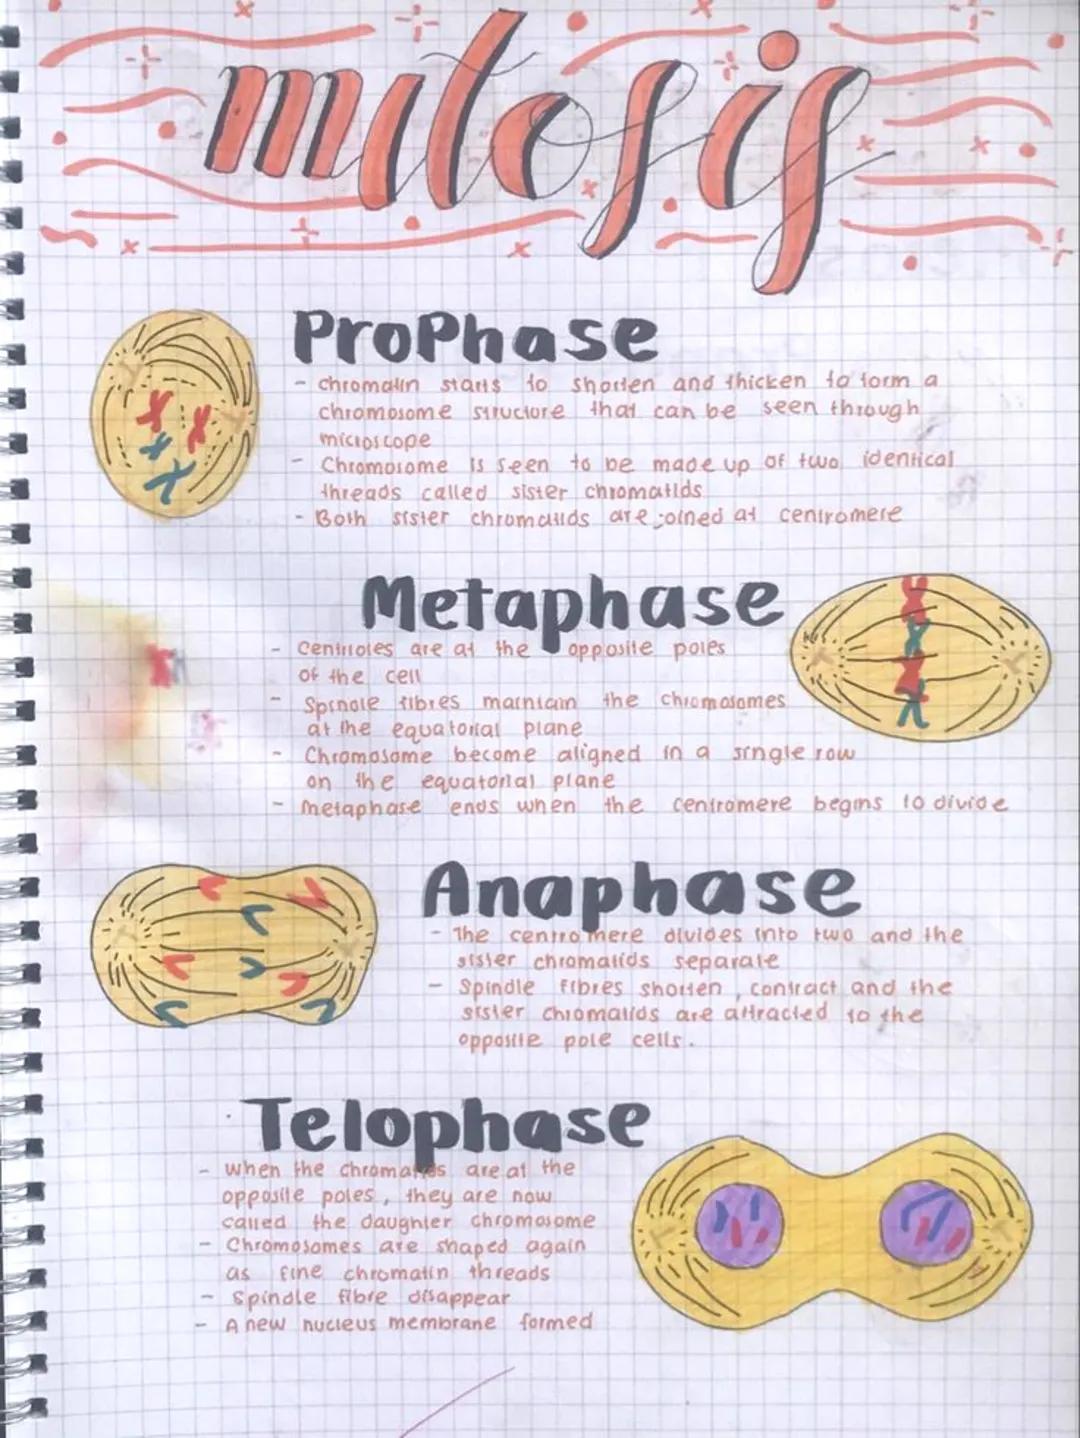 mitosis
Prophase
- chromatin starts to shorten and thicken to form a
chromosome structure that can be seen through
microscope
- Chromosome is seen to be made up of two identical
threads called sister chromatids
- Both sister chromatids are joined at centromere
Metaphase
- Centrioles are at the opposite poles
of the cell
- Spindle fibres maintain the chromosomes
at the equatorial plane
- Chromosome become aligned in a single row
on the equatorial plane
- metaphase ends when the centromere begins to divide
Anaphase
- The centromere divides into two and the
sister chromatids separate
- Spindle fibres shorten, contract and the
sister chromatids are attracted to the
opposite pole cells.
Telophase
- when the chromatids are at the
opposite poles, they are now
called the daughter chromosome
- Chromosomes are shaped again
as fine chromatin threads
- Spindle fibre disappear
- A new nucleus membrane formed